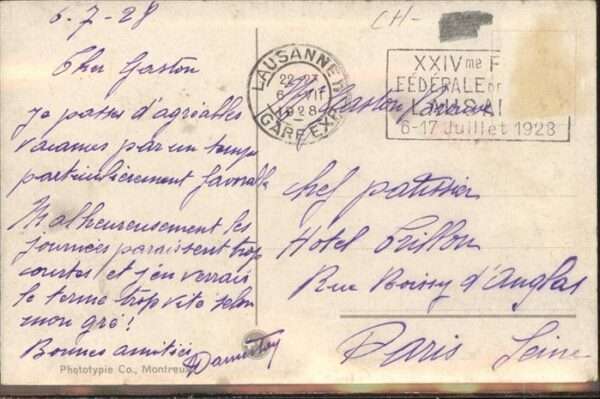 6-7-28
CH-
Cher Gaston
je passe d'agréables
vacances par un temps
particulièrement favorable
Malheureusement les
journées paraissent trop
courtes et j'en verrais
le terme trop vite selon
mon gré!
Bonnes amitiés
Phototypie Co., Montreux
LAUSANNE 1
22-23
6 VII
1928
GARE EXP.
XXIVme F
FÉDÉRALE
LAUSA
6-17 Juillet 1928
Gaston
chef patissier
Hôtel Crillon
Rue Boissy d'Anglas
Paris Seine